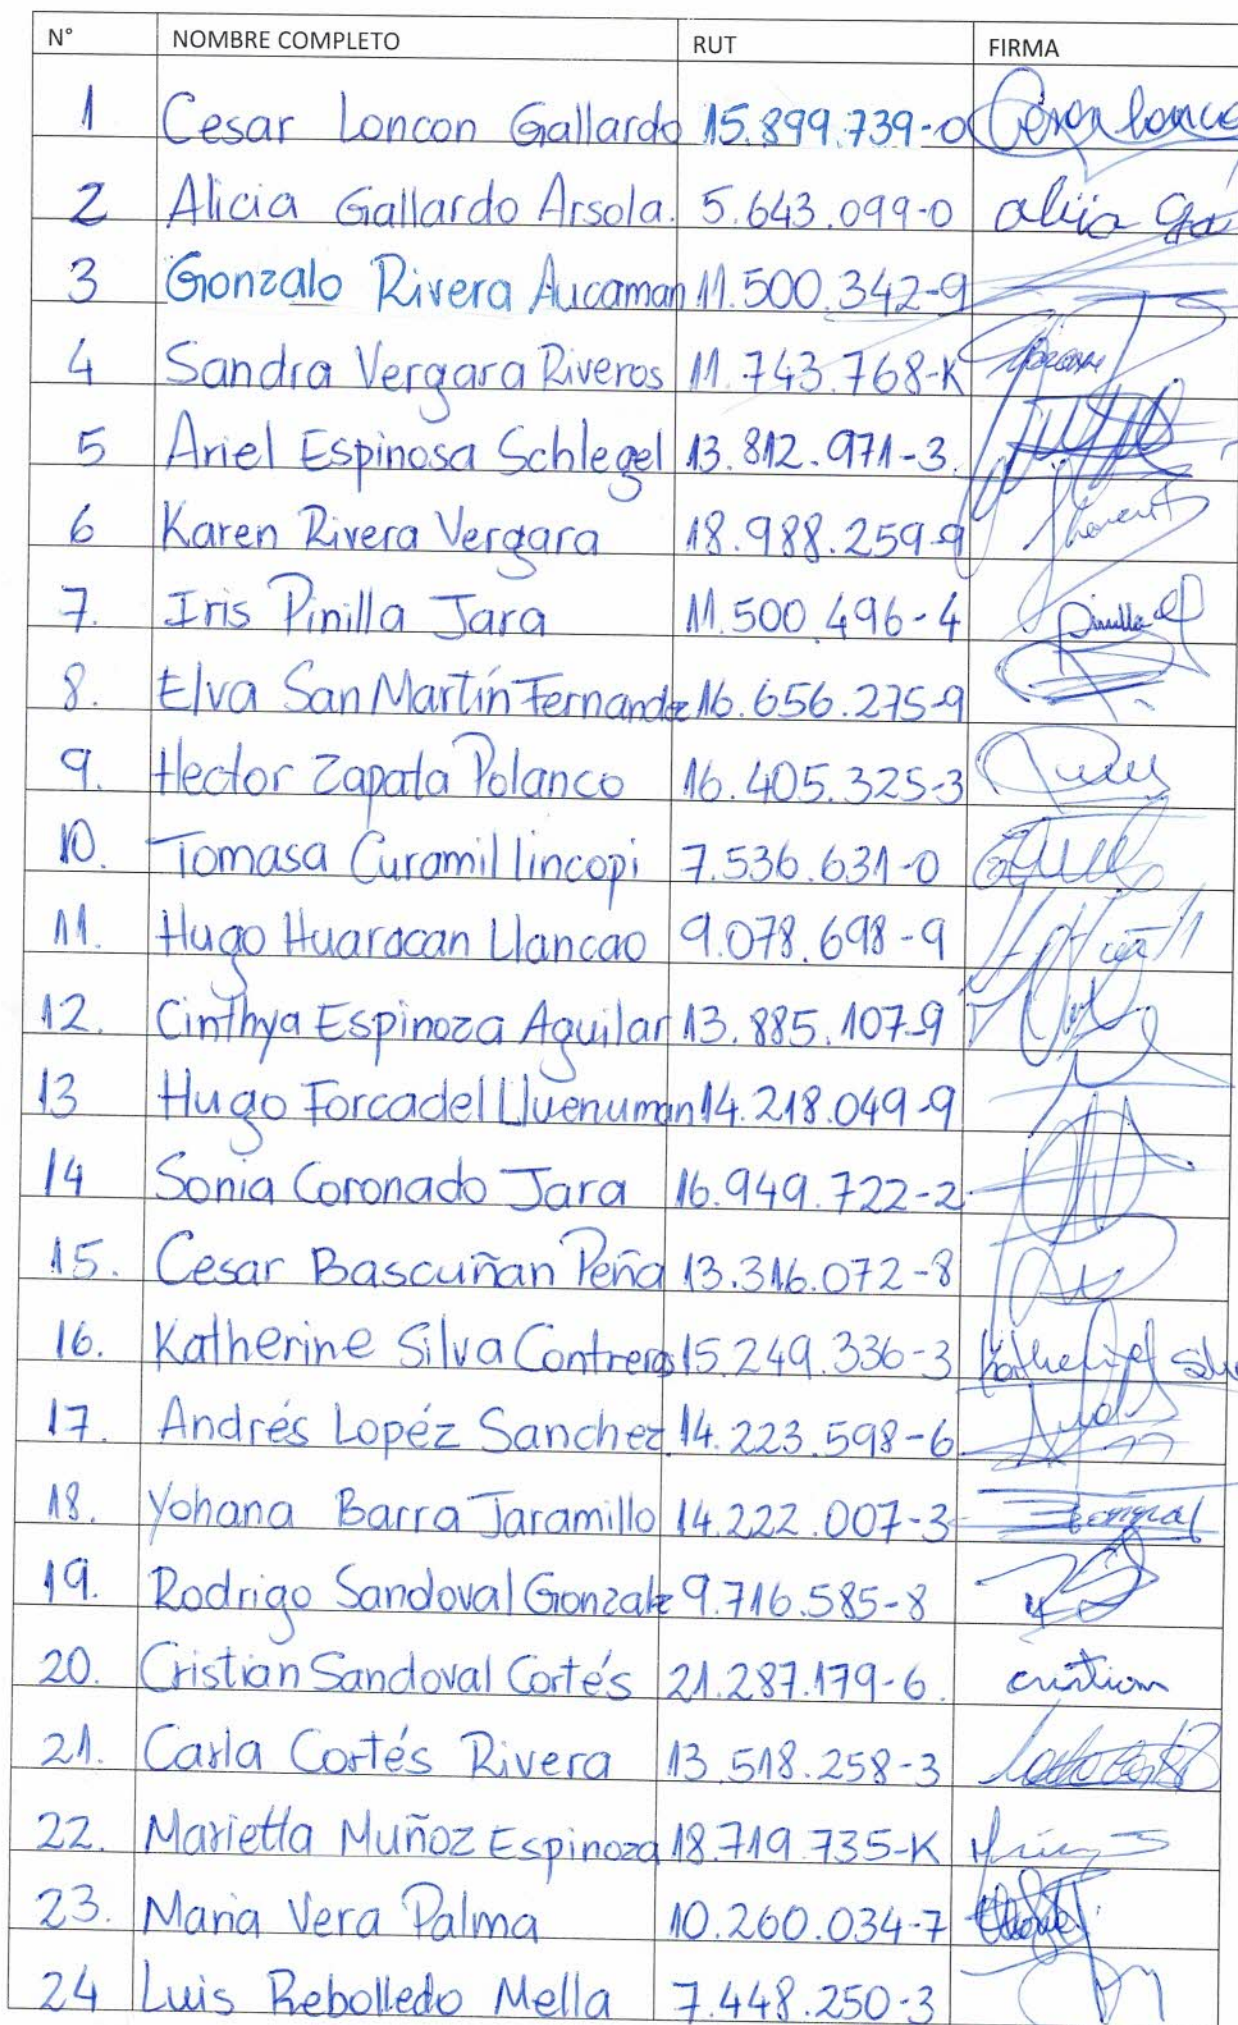 N° NOMBRE COMPLETO RUT FIRMA
1 Cesar Loncon Gallardo 15.899.739-0
2 Alicia Gallardo Arsola. 5.643.099-0
3 Gonzalo Rivera Aucaman 11.500.342-9
4 Sandra Vergara Riveros 11.743.768-K
5 Ariel Espinosa Schlegel 13.812.971-3.
6 Karen Rivera Vergara 18.988.259-9
7. Iris Pinilla Jara 11.500.496-4
8. Elva San Martín Fernandez 16.656.275-9
9. Hector Zapata Polanco 16.405.325-3
10. Tomasa Curamil lincopi 7.536.631-0
11. Hugo Huaracan Llancao 9.078.698-9
12. Cinthya Espinoza Aguilar 13.885.107-9
13 Hugo Forcadel Lluenuman 14.218.049-9
14 Sonia Coronado Jara 16.949.722-2
15. Cesar Bascuñan Peña 13.316.072-8
16. Katherine Silva Contreras 15.249.336-3
17. Andrés Lopéz Sanchez 14.223.598-6
18. Yohana Barra Jaramillo 14.222.007-3
19. Rodrigo Sandoval Gonzalez 9.716.585-8
20. Cristian Sandoval Cortés 21.287.179-6. cristian
21. Carla Cortés Rivera 13.518.258-3
22. Marietta Muñoz Espinoza 18.719.735-K
23. Maria Vera Palma 10.260.034-7
24 Luis Rebolledo Mella 7.448.250-3